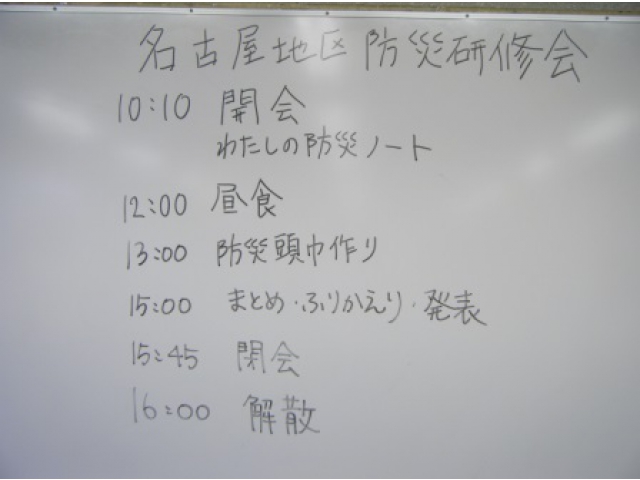 名古屋地区防災研修会
10:10 開会
わたしの防災ノート
12:00 昼食
13:00 防災頭巾作り
15:00 まとめ・ふりかえり・発表
15:45 閉会
16:00 解散